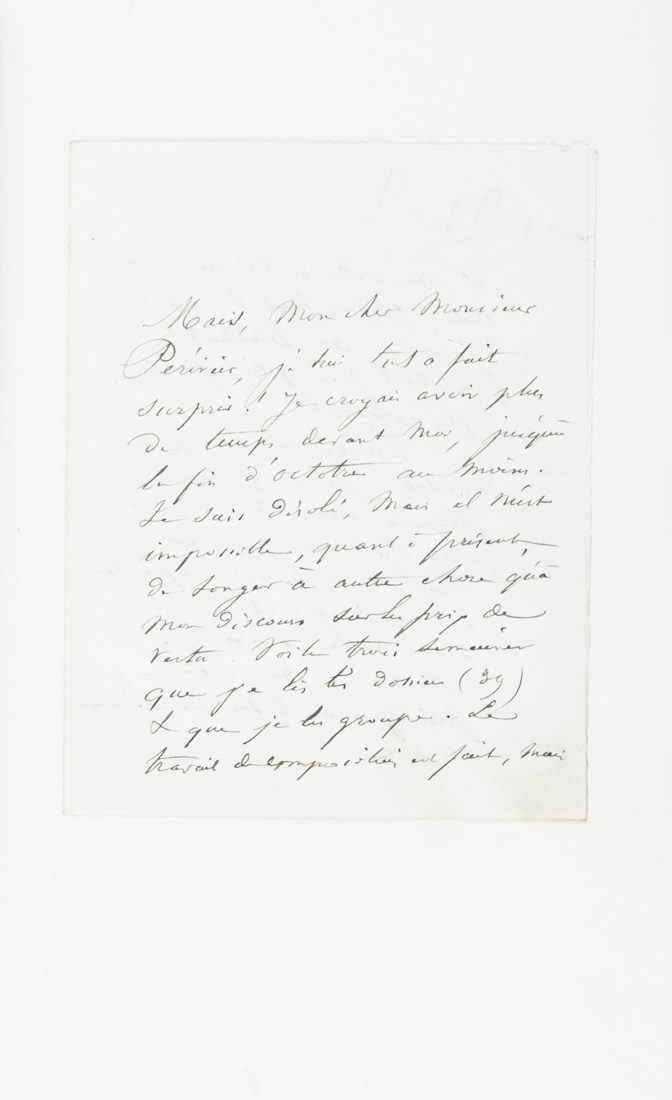 Mais, Mon cher Monsieur
Périvier, je suis tout à fait
surpris ! Je croyais avoir plus
de temps devant moi, jusqu'à
la fin d'octobre au moins.
Je suis désolé, Mais il m'est
impossible, quant à présent,
de songer à autre chose qu'à
mon discours sur les prix de
Vertu. Voilà trois semaines
que je lis les dossiers (39)
& que je les groupe. Le
travail de composition est fait, mais